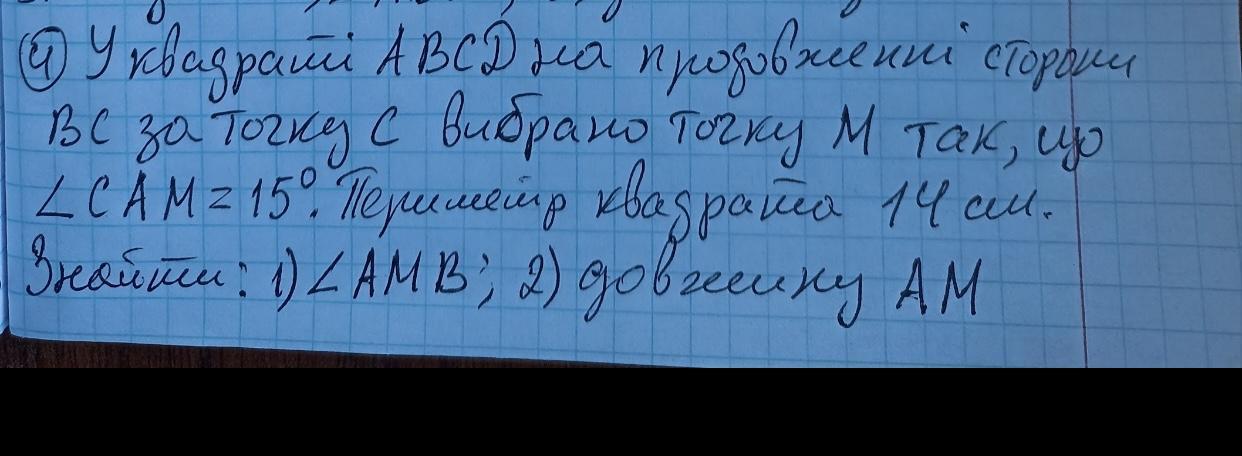 ④ У квадраті ABCD на продовженні сторони
BC за точку C вибрано точку M так, що
∠CAM = 15°. Периметр квадрата 14 см.
Знайти: 1) ∠AMB; 2) довжину AM